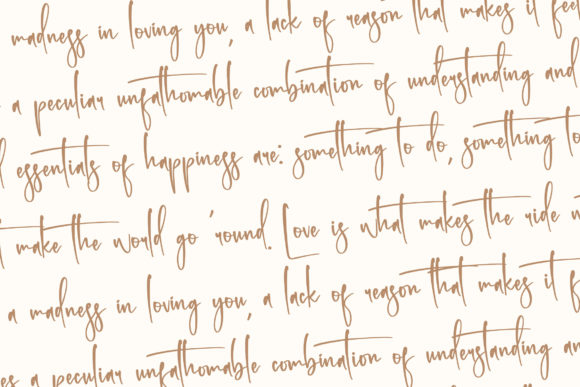 madness in loving you, a lack of reason that makes it feel
a peculiar unfathomable combination of understanding and
essentials of happiness are: something to do, something to
make the world go 'round. Love is what makes the ride
a madness in loving you, a lack of reason that makes it f
es a peculiar unfathomable combination of understanding an